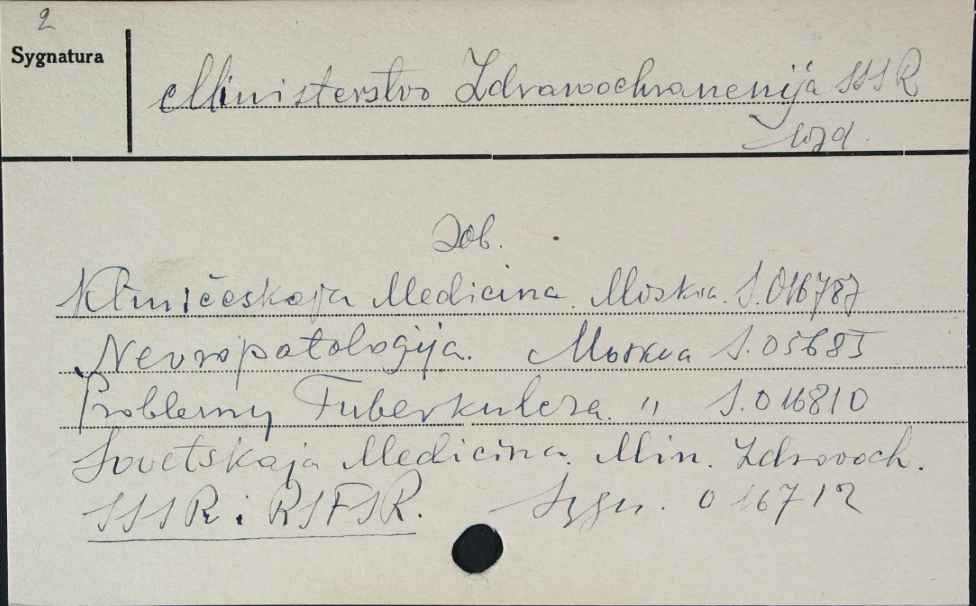 2
Sygnatura
Ministerstvo Zdravoochranenija SSSR
wyd.
zob.
Kliničeskaja Medicina. Moskva. S.016787
Nevropatologija. Moskva S.05685
Problemy Tuberkuleza. " S.016810
Sovetskaja Medicina. Min. Zdravooch.
SSSR i RSFSR. Sygn. 016712